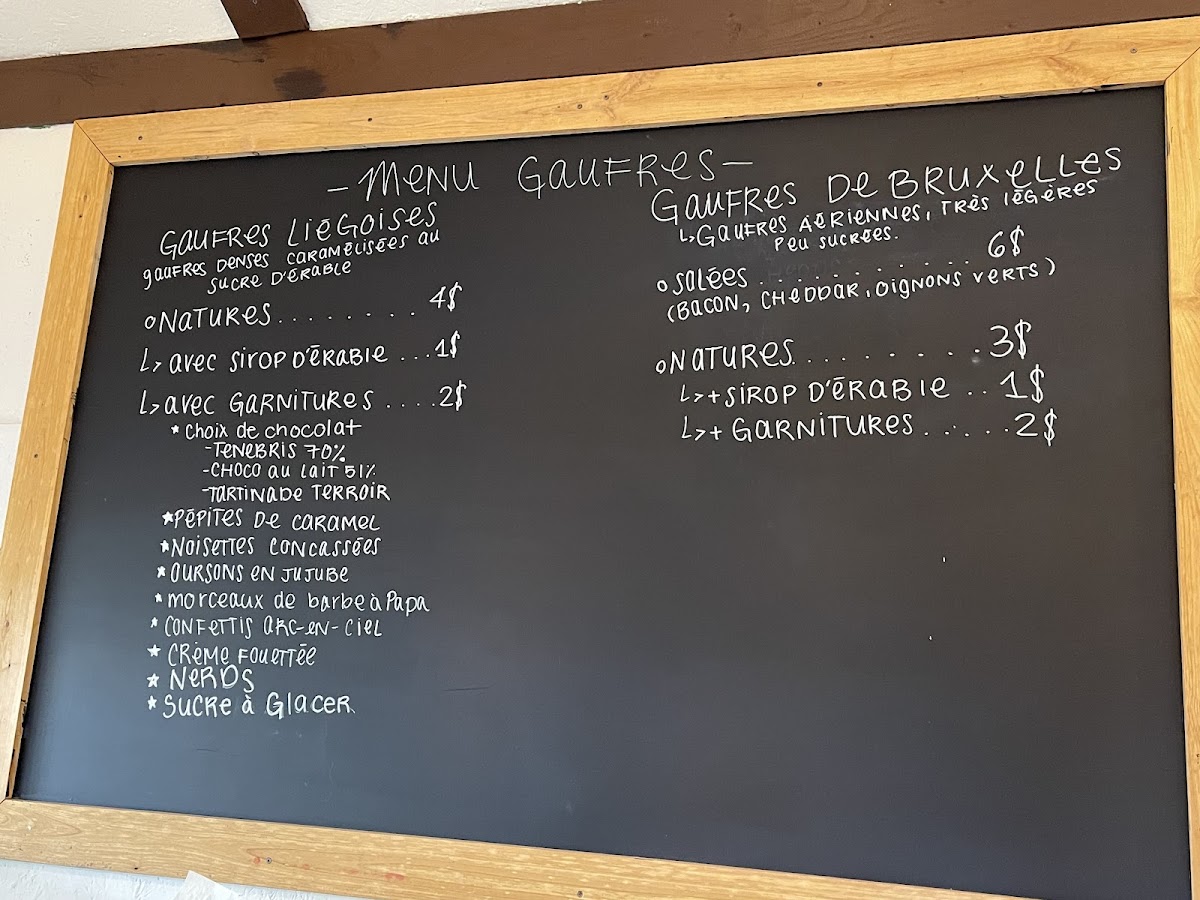 - MENU GAUFRES -
GAUFRES LIÉGOISES
GAUFRES DENSES CARAMÉLISÉES AU
SUCRE D'ÉRABLE
○ NATURES........ 4$
↳ avec SIROP D'ÉRABLE ...1$
↳ avec GARNITURES ....2$
* CHOIX de CHOCOLAT
- TENEBRIS 70%
- CHOCO AU LAIT 51%
- TARTINADE TERROIR
* PÉPITES DE CARAMEL
* NOISETTES CONCASSÉES
* OURSONS EN JUJUBE
* morceaux de barbe à Papa
* CONFETTIS ARC-EN-CIEL
* CRÈME FOUETTÉE
* NERDS
* SUCRE à GLACER
GAUFRES DE BRUXELLES
↳ GAUFRES AÉRIENNES, TRÈS LÉGÈRES
PEU SUCRÉES.
○ SALÉES ............ 6$
(BACON, CHEDDAR, OIGNONS VERTS)
○ NATURES.......... 3$
↳ + SIROP D'ÉRABLE .. 1$
↳ + GARNITURES...... 2$